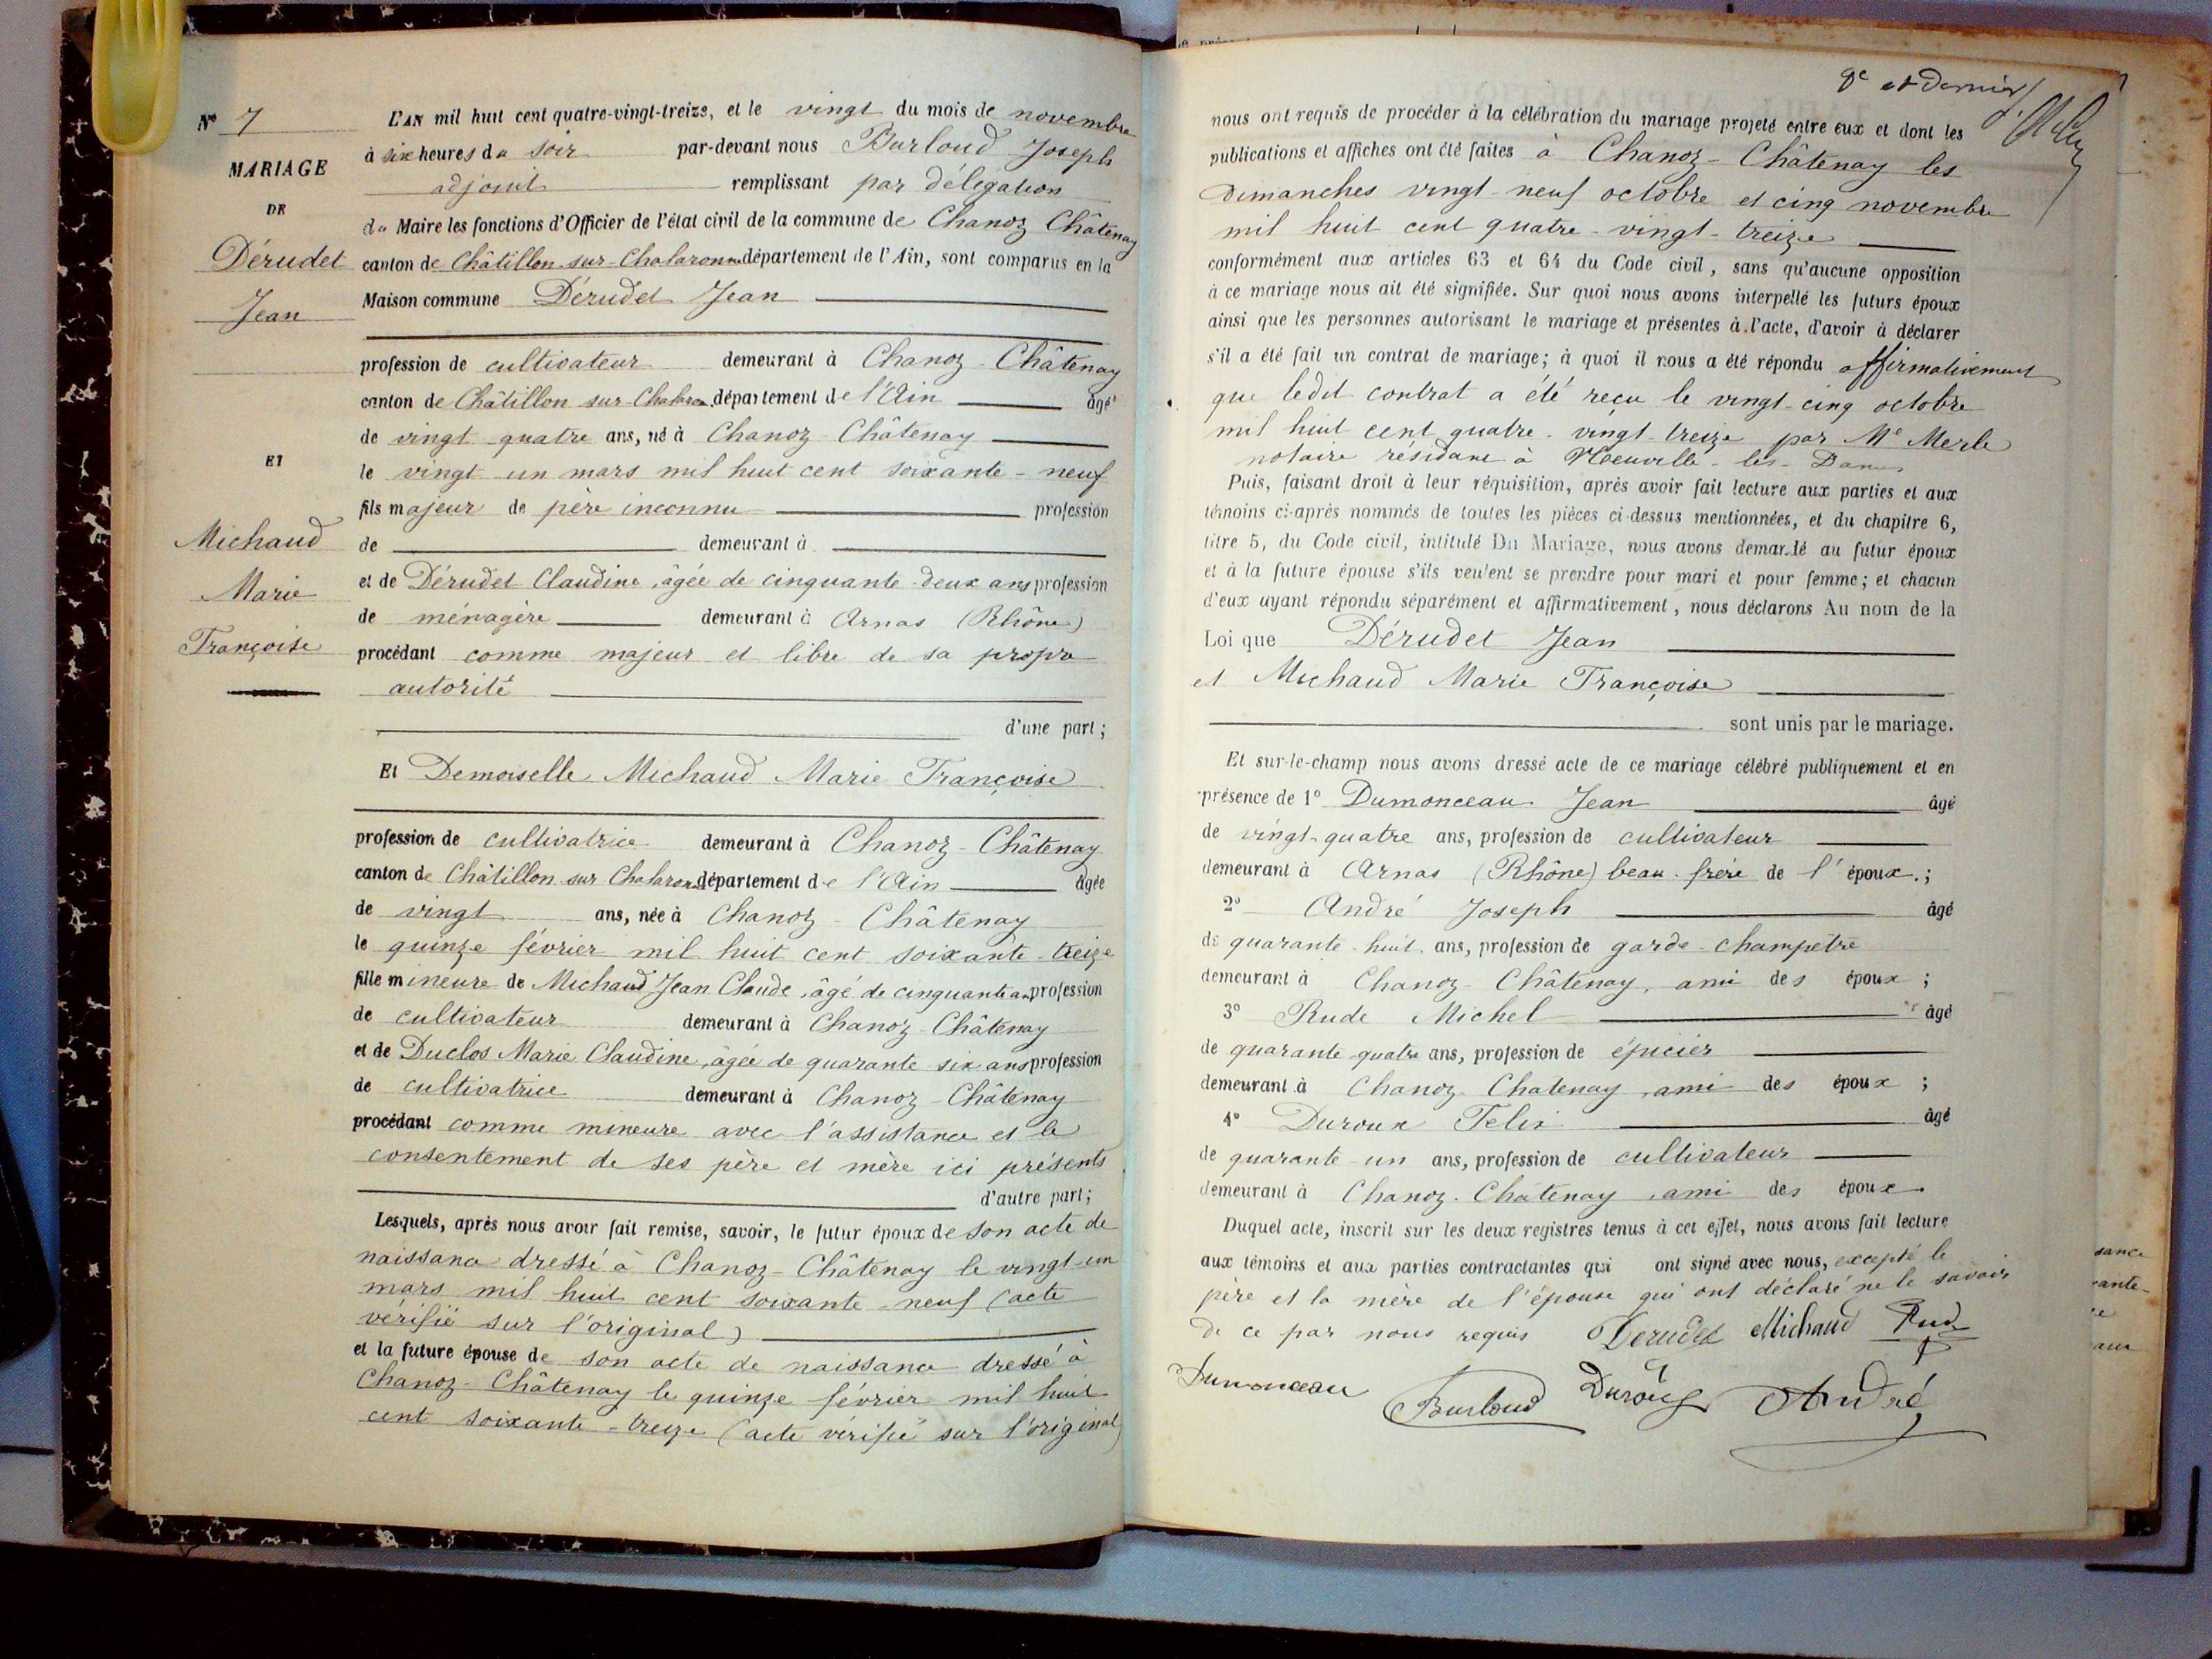 N° 7
MARIAGE
DE
Dérudet
Jean
ET
Michaud
Marie
Françoise
L'AN mil huit cent quatre-vingt-treize, et le vingt du mois de novembre
à six heures du soir par-devant nous Burloud Joseph
adjoint remplissant par délégation
du Maire les fonctions d'Officier de l'état civil de la commune de Chanoz Châtenay
canton de Châtillon-sur-Chalaronne département de l'Ain, sont comparus en la
Maison commune Dérudet Jean
profession de cultivateur demeurant à Chanoz-Châtenay
canton de Châtillon sur-Chalaron. département de l'Ain âgé
de vingt-quatre ans, né à Chanoz Châtenay
le vingt-un mars mil huit cent soixante-neuf
fils majeur de père inconnu profession
de demeurant à
et de Dérudet Claudine, âgée de cinquante-deux ans profession
de ménagère demeurant à Arnas (Rhône)
procédant comme majeur et libre de sa propre
autorité
d'une part;
Et Demoiselle Michaud Marie Françoise
profession de cultivatrice demeurant à Chanoz-Châtenay
canton de Châtillon-sur Chalaronne département de l'Ain âgée
de vingt ans, née à Chanoz-Châtenay
le quinze février mil huit cent soixante-treize
fille mineure de Michaud Jean Claude, âgé de cinquante ans profession
de cultivateur demeurant à Chanoz-Châtenay
et de Duclos Marie Claudine, âgée de quarante six ans profession
de cultivatrice demeurant à Chanoz-Châtenay
procédant comme mineure avec l'assistance et le
consentement de ses père et mère ici présents
d'autre part;
Lesquels, après nous avoir fait remise, savoir, le futur époux de son acte de
naissance dressé à Chanoz-Châtenay le vingt-un
mars mil huit cent soixante-neuf (acte
vérifié sur l'original)
et la future épouse de son acte de naissance dressé à
Chanoz-Châtenay le quinze février mil huit
cent soixante-treize (acte vérifié sur l'original)
8e et dernier
nous ont requis de procéder à la célébration du mariage projeté entre eux et dont les
publications et affiches ont été faites à Chanoz-Châtenay les
dimanches vingt-neuf octobre et cinq novembre
mil huit cent quatre-vingt-treize
conformément aux articles 63 et 64 du Code civil, sans qu'aucune opposition
à ce mariage nous ait été signifiée. Sur quoi nous avons interpellé les futurs époux
ainsi que les personnes autorisant le mariage et présentes à l'acte, d'avoir à déclarer
s'il a été fait un contrat de mariage; à quoi il nous a été répondu affirmativement
que ledit contrat a été reçu le vingt-cinq octobre
mil huit cent quatre-vingt-treize par Me Merle
notaire résidant à Neuville-les-Dames
Puis, faisant droit à leur réquisition, après avoir fait lecture aux parties et aux
témoins ci-après nommés de toutes les pièces ci-dessus mentionnées, et du chapitre 6,
titre 5, du Code civil, intitulé Du Mariage, nous avons demandé au futur époux
et à la future épouse s'ils veulent se prendre pour mari et pour femme; et chacun
d'eux ayant répondu séparément et affirmativement, nous déclarons Au nom de la
Loi que Dérudet Jean
et Michaud Marie Françoise
sont unis par le mariage.
Et sur-le-champ nous avons dressé acte de ce mariage célébré publiquement et en
présence de 1° Dumonceau Jean âgé
de vingt-quatre ans, profession de cultivateur
demeurant à Arnas (Rhône) beau-frère de l'époux.;
2° André Joseph âgé
de quarante-huit ans, profession de garde-champêtre
demeurant à Chanoz-Châtenay, ami des époux;
3° Rude Michel âgé
de quarante-quatre ans, profession de épicier
demeurant à Chanoz-Chatenay, ami des époux;
4° Duroux Felix âgé
de quarante-un ans, profession de cultivateur
demeurant à Chanoz-Chatenay, ami des époux.
Duquel acte, inscrit sur les deux registres tenus à cet effet, nous avons fait lecture
aux témoins et aux parties contractantes qui ont signé avec nous, excepté le
père et la mère de l'épouse qui ont déclaré ne le savoir
de ce par nous requis Derudet Michaud Rude
Dumonceau Burloud Duroux André